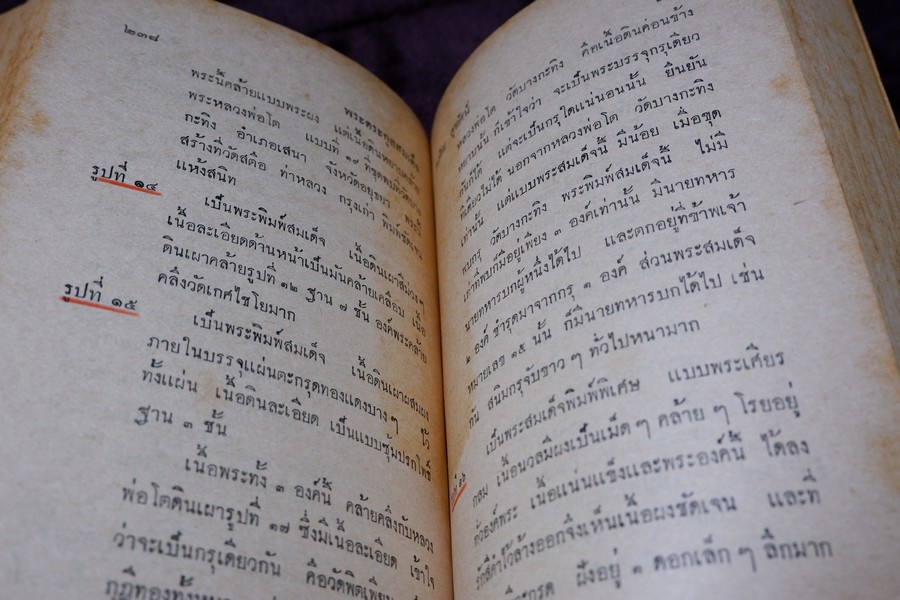 ๒๓๘
พระนี้คล้ายแบบพระผง แต่เนื้อดินหยาบ
พระหลวงพ่อโต แบบที่ ๑๙ ที่ขุดพบที่วัดบาง
กะทิง อำเภอเสนา จังหวัดอยุธยา
สร้างที่วัดสตือ ท่าหลวง กรุงเก่า
แห้งสนิท
รูปที่ ๑๔
เป็นพระพิมพ์สมเด็จ เนื้อดินเผาสีม่วง ๆ
เนื้อละเอียดด้านหน้าเป็นมันคล้ายเคลือบ เนื้อ
ดินเผาคล้ายรูปที่ ๑๒ ฐาน ๗ ชั้น องค์พระคล้าย
คลึงวัดเกศไชโยมาก
รูปที่ ๑๕
เป็นพระพิมพ์สมเด็จ เนื้อดินเผาผสมผง
ภายในบรรจุแผ่นตะกรุดทองแดงบาง ๆ ไว้
ทั้งแผ่น เนื้อดินละเอียด เป็นแบบซุ้มปรกโพธิ์
ฐาน ๓ ชั้น
เนื้อพระทั้ง ๓ องค์นี้ คล้ายคลึงกับหลวง
พ่อโตดินเผารูปที่ ๑๗ ซึ่งมีเนื้อละเอียด เข้าใจ
ว่าจะเป็นกรุเดียวกัน คือวัดพิตเพียน
กุฎีทอง
หลวงพ่อโต วัดบางกะทิง คือเนื้อดินค่อนข้าง
หยาบนั้น ก็เข้าใจว่า จะเป็นพระบรรจุกรุเดียว
กันก็ได้ แต่จะเป็นกรุใดแน่นอนนั้น ยืนยัน
ทีเดียวไม่ได้ นอกจากหลวงพ่อโต วัดบางกะทิง
เท่านั้น แต่แบบพระสมเด็จนี้ มีน้อย เมื่อขุด
พบกรุ วัดบางกะทิง พระพิมพ์สมเด็จนี้ ไม่มี
เท่าที่พบก็มีอยู่เพียง ๓ องค์เท่านั้น มีนายทหาร
นายทหารบกผู้หนึ่งได้ไป และตกอยู่ที่ข้าพเจ้า
๒ องค์ ชำรุดมาจากกรุ ๑ องค์ ส่วนพระสมเด็จ
หมายเลข ๑๕ นั้น ก็มีนายทหารบกได้ไป เช่น
กัน สนิมกรุจับขาว ๆ ทั่วไปหนามาก
เป็นพระสมเด็จพิมพ์พิเศษ แบบพระเศียร
กลม เนื้อนวลมีผงเป็นเม็ด ๆ คล้าย ๆ โรยอยู่
ทั่วองค์พระ เนื้อแน่นแข็งและพระองค์นี้ ได้ลง
รักสีดำไว้ล้างออกจึงเห็นเนื้อผงชัดเจน และที่
ตะกรุด ฝังอยู่ ๑ ดอกเล็ก ๆ ลึกมาก